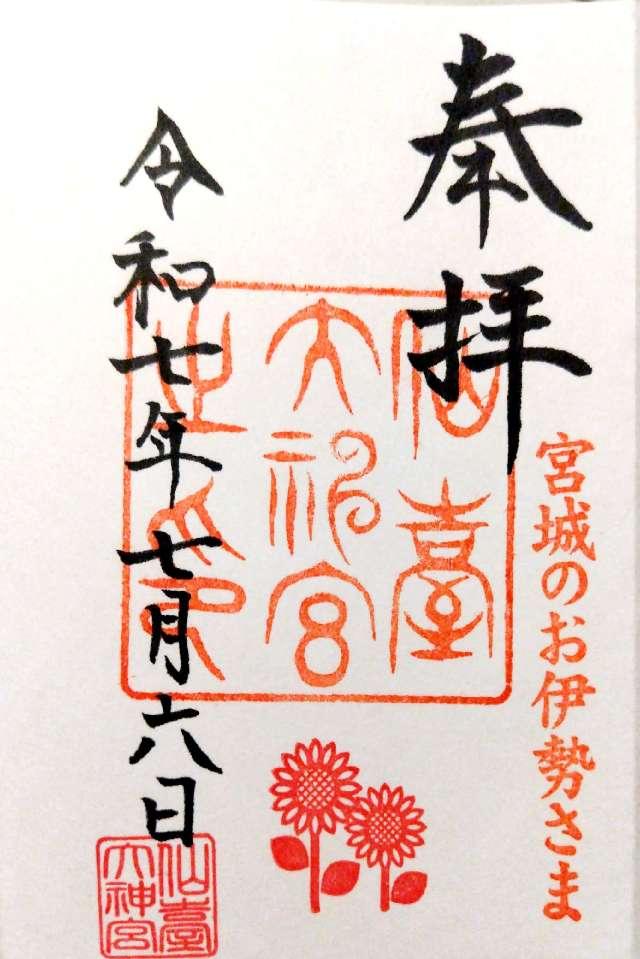 奉拝
宮城のお伊勢さま
仙臺
大神宮
之印
令和七年七月六日
仙臺
大神宮